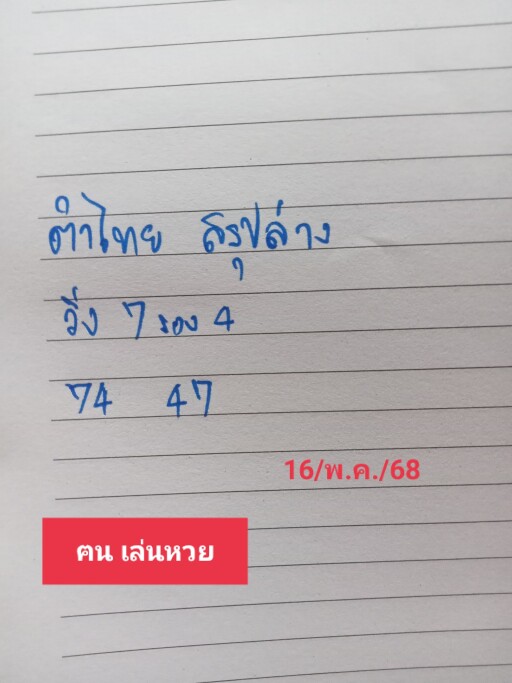 ตำไทย สรุปล่าง
วิ่ง 7 รอง 4
74 47
16/พ.ค./68
ฅน เล่นหวย